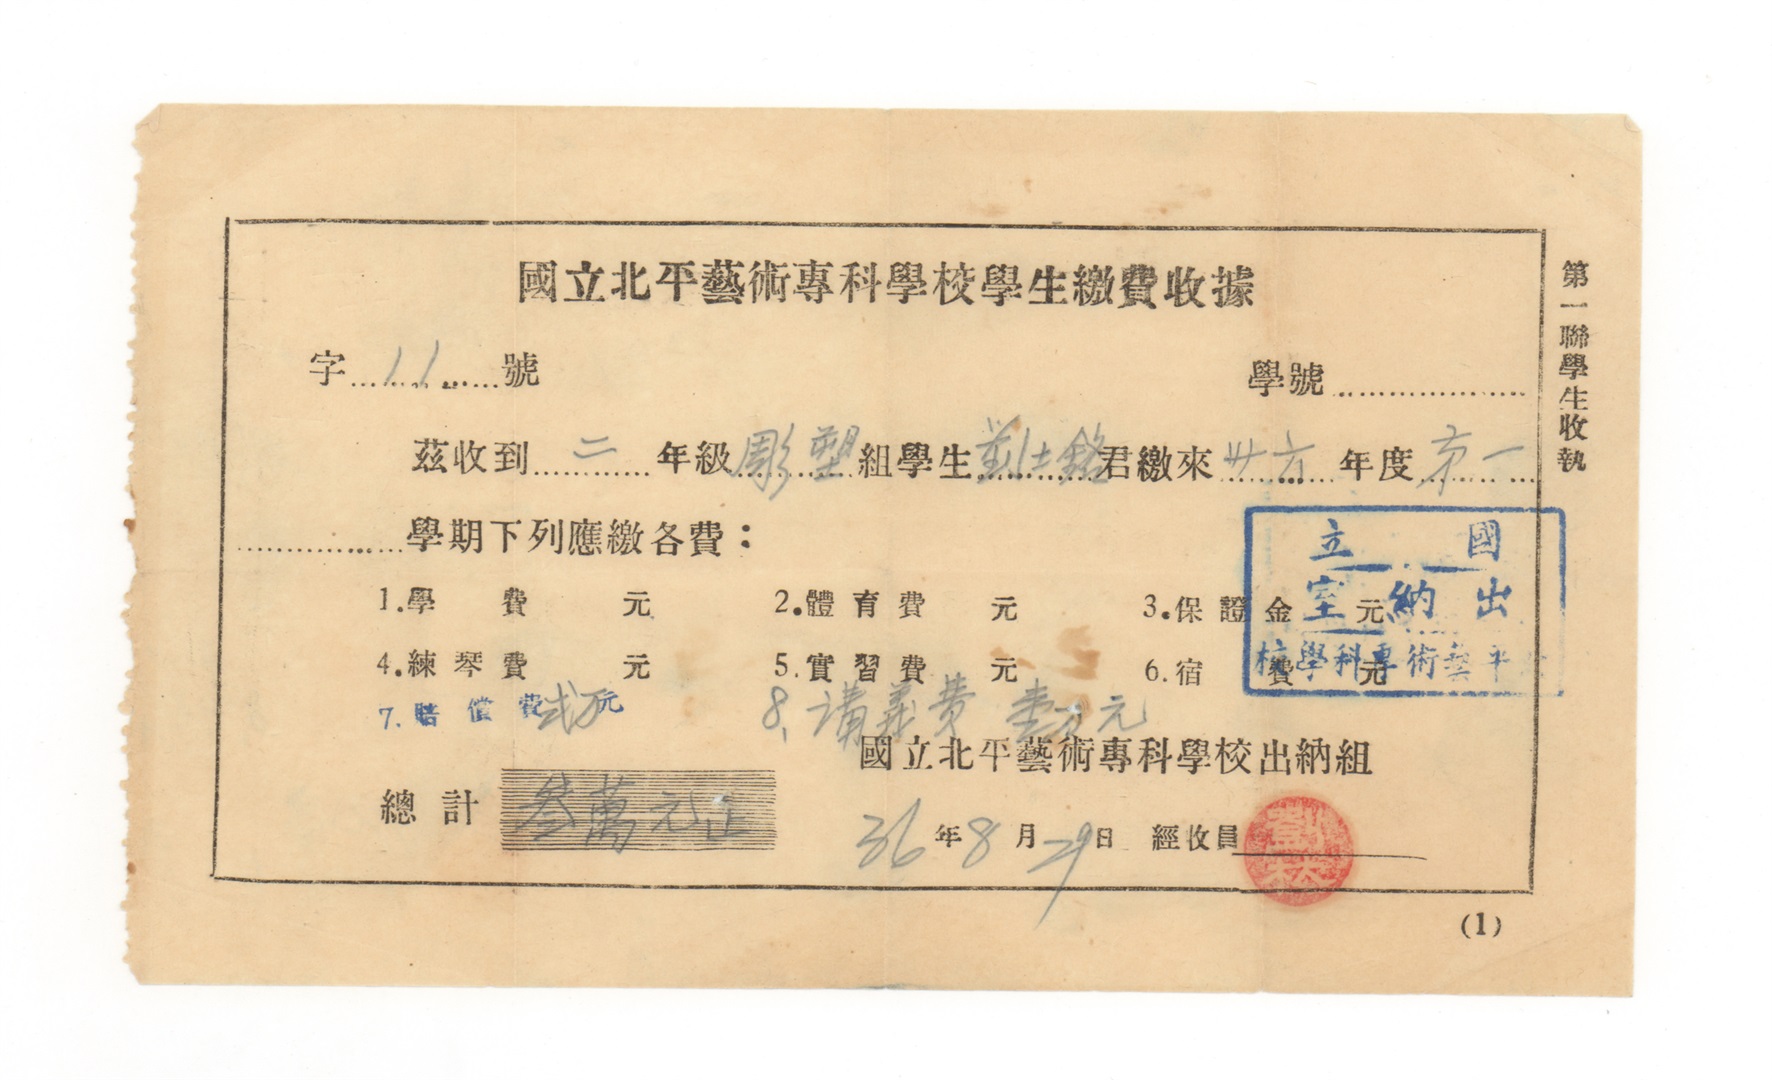 國立北平藝術專科學校學生繳費收據
字 11 號 學號
茲收到 二 年級 彫塑 組學生 劉士銘 君繳來 卅六 年度 第一
學期下列應繳各費：
1.學費 元 2.體育費 元 3.保證金 元
4.練琴費 元 5.實習費 元 6.宿費 元
7.賠償費 弍万 元 8、講義費 壹万元
國立北平藝術專科學校出納組
總計 叁萬元正
36年8月29日 經收員
(1)
第一聯學生收執
國立
出納室
平藝術專科學校